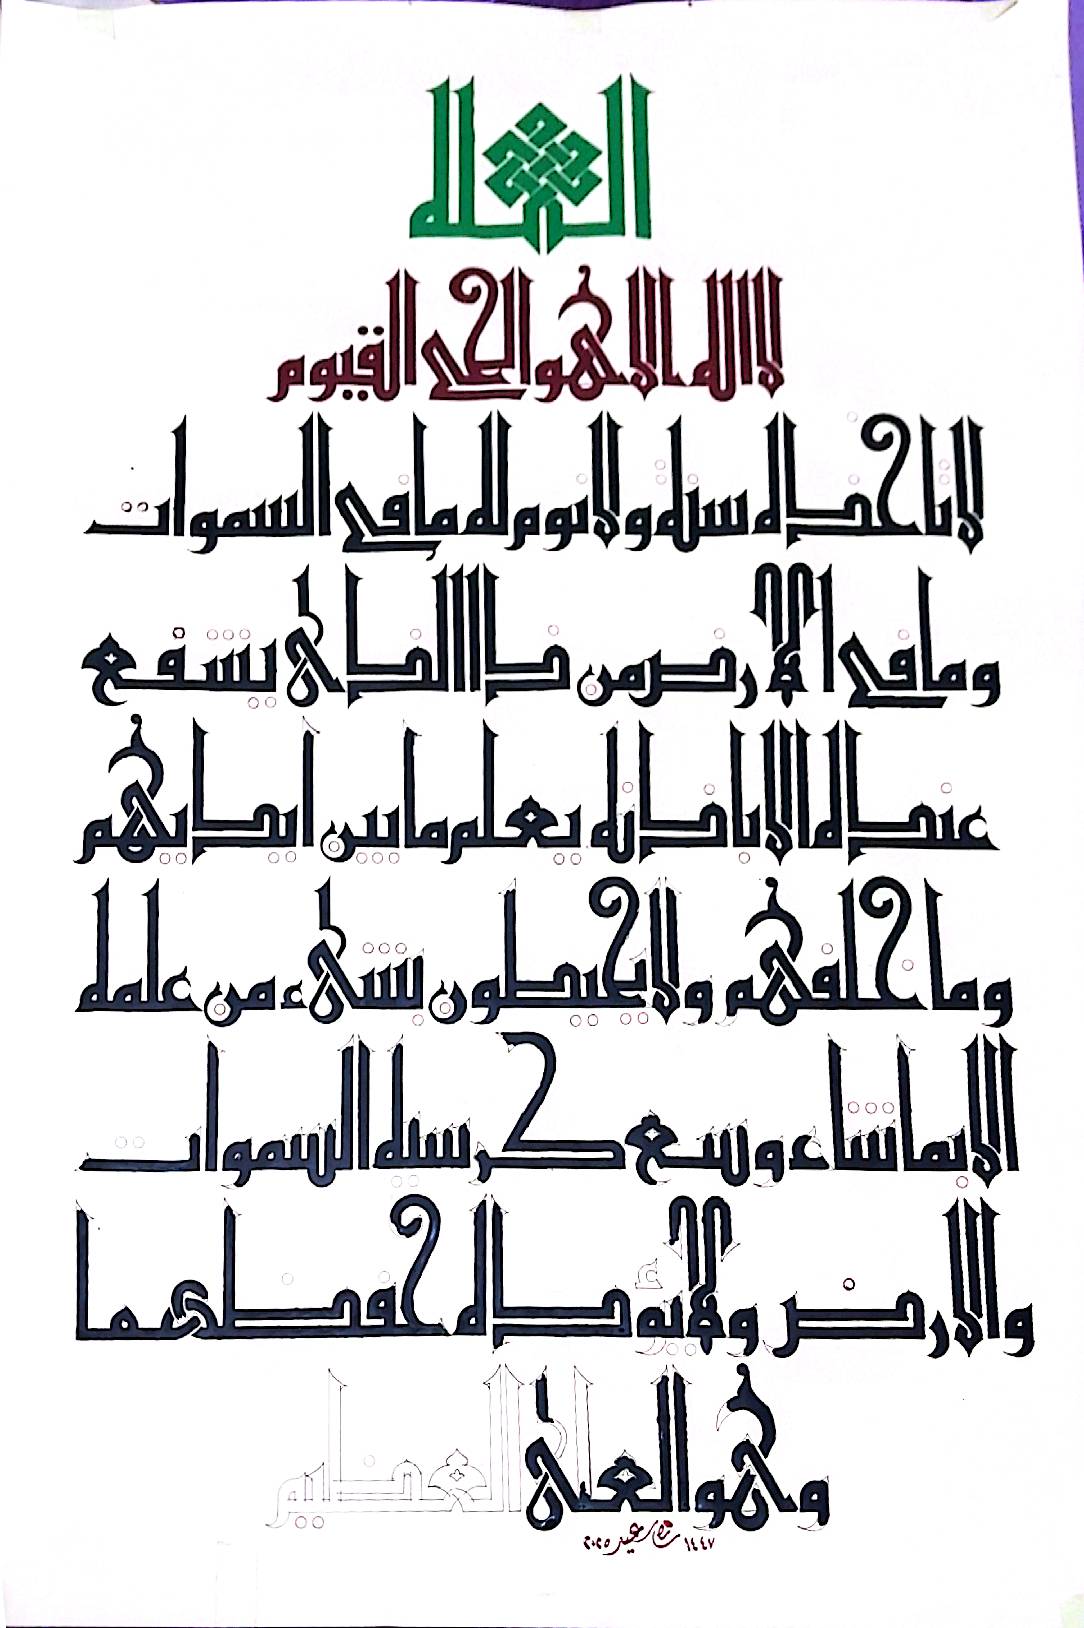 الله
لا اله الا هو الحي القيوم
لا تاخذه سنة ولا نوم له ما في السموات
وما في الارض من ذا الذي يشفع
عنده الا باذنه يعلم ما بين ايديهم
وما خلفهم ولا يحيطون بشيء من علمه
الا بما شاء وسع كرسيه السموات
والارض ولا يؤده حفظهما
وهو العلي العظيم
١٤٤٧ ٢٠٢٥